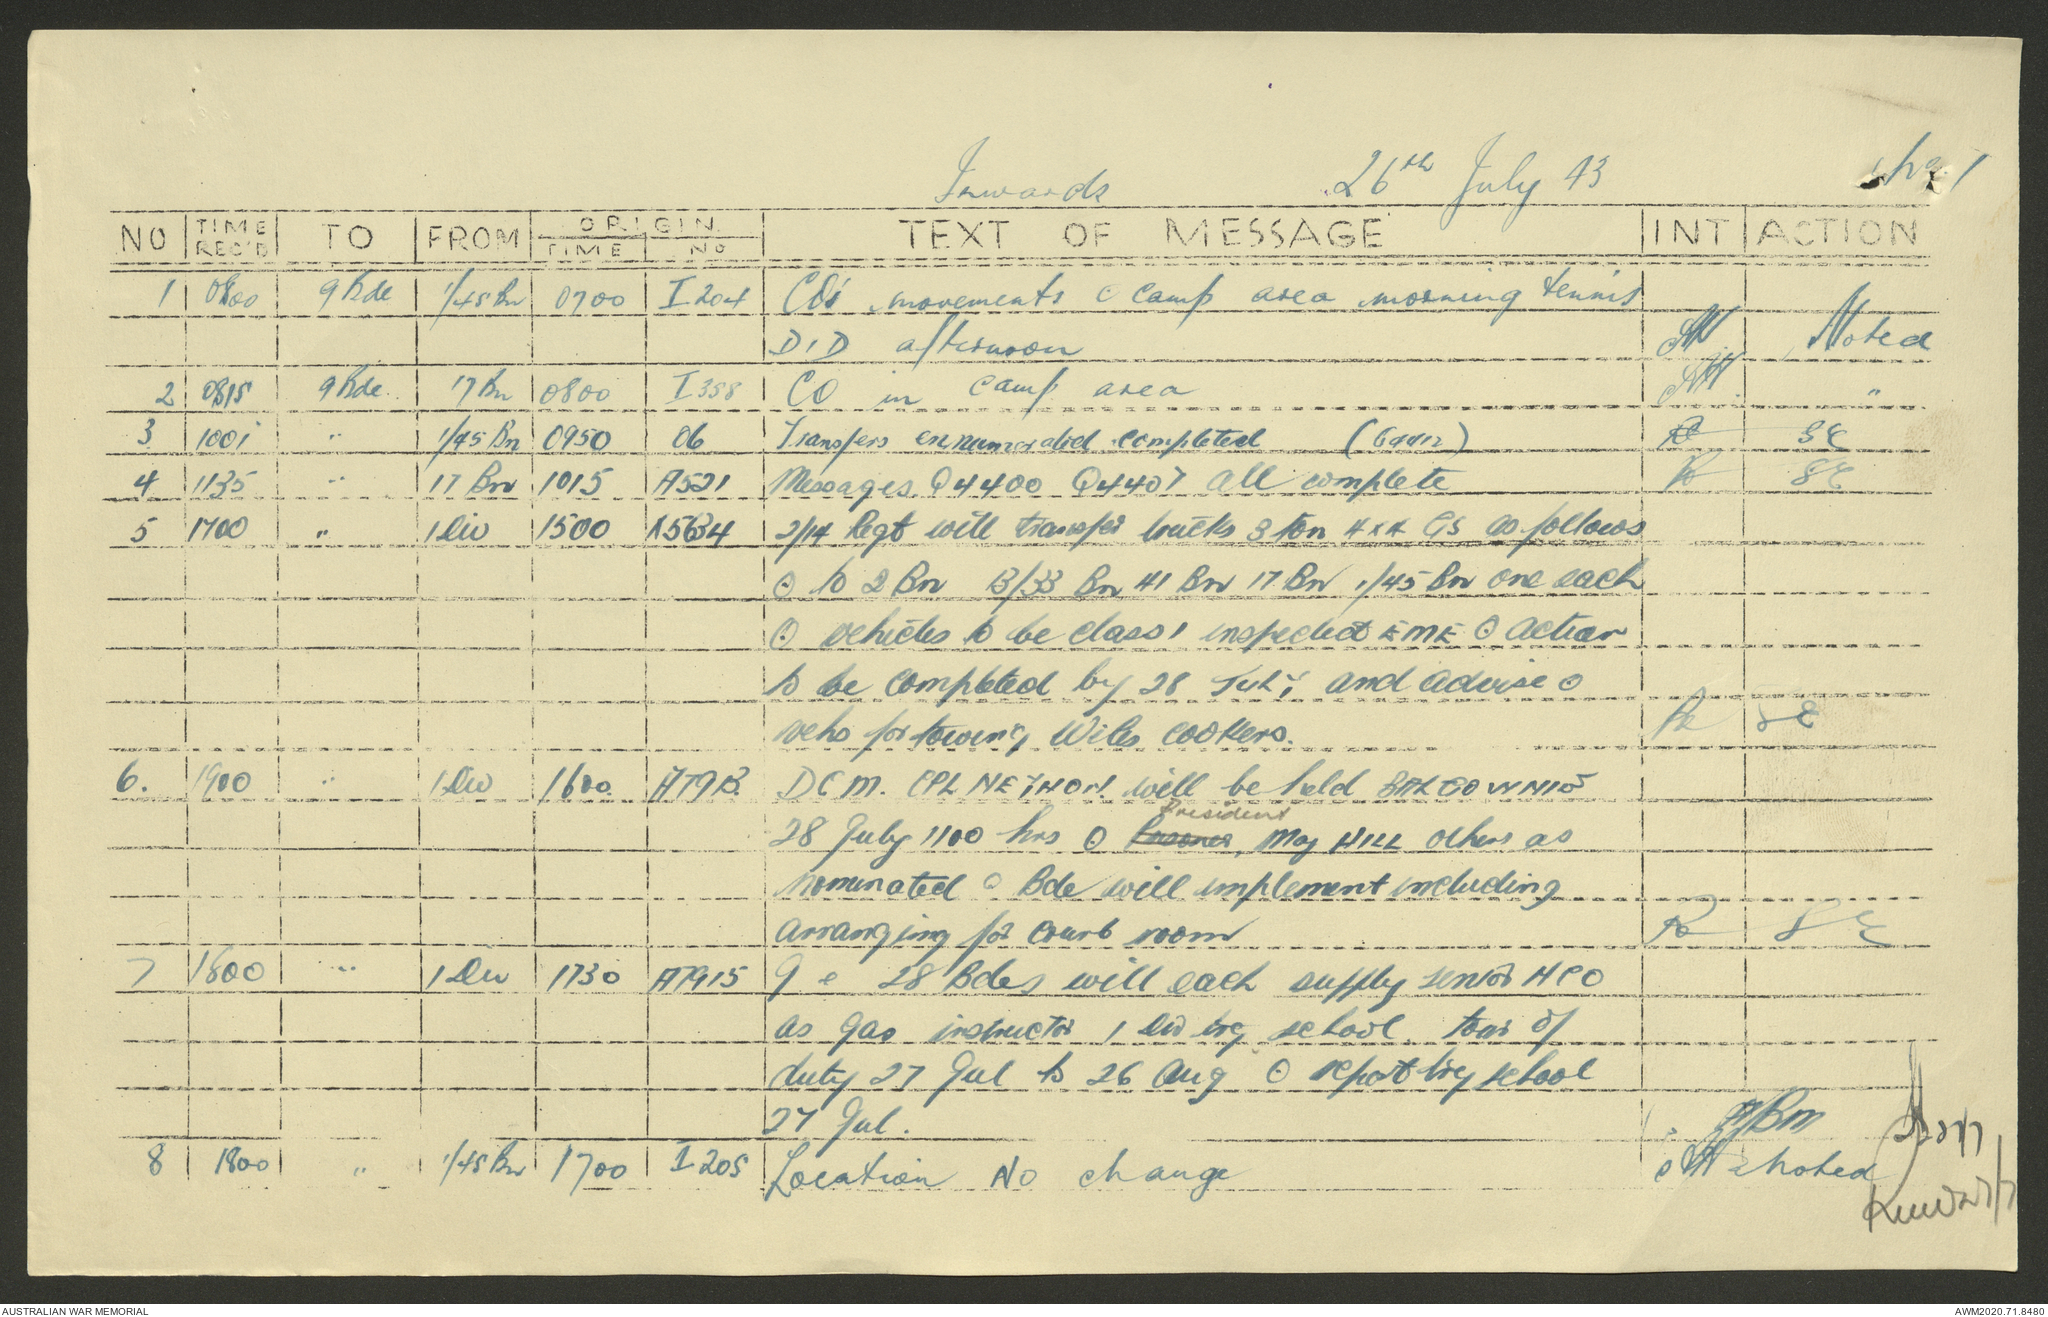 Inwards 26th July 43
NO TIME REC'D TO FROM ORIGIN TIME NO TEXT OF MESSAGE INT ACTION
1 0800 9 Bde 1/45 Bn 0700 I 204 CO's movements camp area morning tennis
DID afternoon Noted
2 0815 9 Bde 17 Bn 0800 I 358 CO in camp area "
3 1001 " 1/45 Bn 0950 06 Transfers ennumerated completed SC
4 1135 " 17 Bn 1015 A521 Messages Q4400 Q4407 all complete SC
5 1700 " 1 Div 1500 2/14 Regt will transfer trucks 3 ton 4x4 GS as follows
⊙ to 2 Bn 13/33 Bn 41 Bn 17 Bn 1/45 Bn one each
⊙ vehicles to be class 1 inspected EME ⊙ action
to be completed by 28 July and advise ⊙
vehs for towing Wiles cookers. SC
6. 1900 " 1 Div 1600 DCM. CPL will be held
President
28 July 1100 hrs ⊙ Maj HILL others as
nominated ⊙ Bde will implement including
arranging for court room SC
7 1800 " 1 Div 1730 A7915 9 e 28 Bdes will each supply senior NCO
as gas instructor 1 Div trg school. tour of
duty 27 Jul to 26 Aug ⊙ report trg school
27 Jul. BM
8 1800 " 1/45 Bn 1700 I 205 Location No change Noted
AUSTRALIAN WAR MEMORIAL AWM2020.71.8480